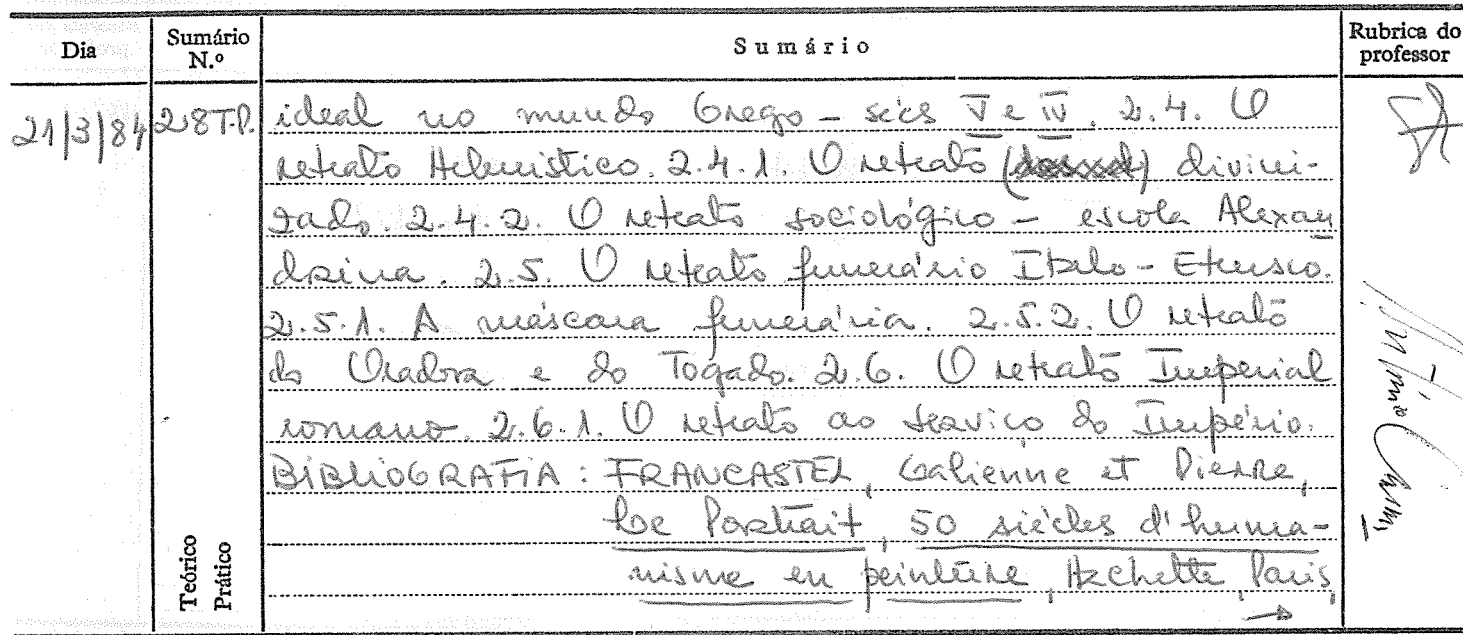 Dia
Sumário N.º
Sumário
Rubrica do professor
21/3/84
28T.P.
ideal no mundo Grego – sécs V e IV. 2.4. O
retrato Helenístico. 2.4.1. O retrato divini-
zado. 2.4.2. O retrato sociológico – escola Alexan
drina. 2.5. O retrato funerário Italo-Etrusco.
2.5.1. A máscara funerária. 2.5.2. O retrato
do Orador e do Togado. 2.6. O retrato Imperial
romano. 2.6.1. O retrato ao serviço do Império.
BIBLIOGRAFIA: FRANCASTEL, Galienne et Pierre,
Le Portrait, 50 siècles d'huma-
nisme en peinture, Hachette, Paris,
Teórico
Prático